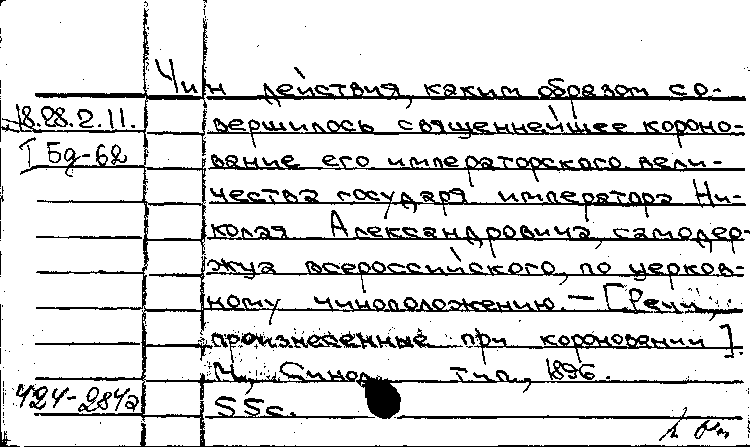 Чин действия, каким образом со-
18.28.2.11. вершилось священнейшее короно-
I Бд-62 вание его императорского вели-
чества государя императора Ни-
колая Александровича, самодер-
жца всероссийского, по церков-
ному чиноположению. – [Речи,
произнесенные при короновании].
М., Синод. тип., 1896.
424-284а 55с.